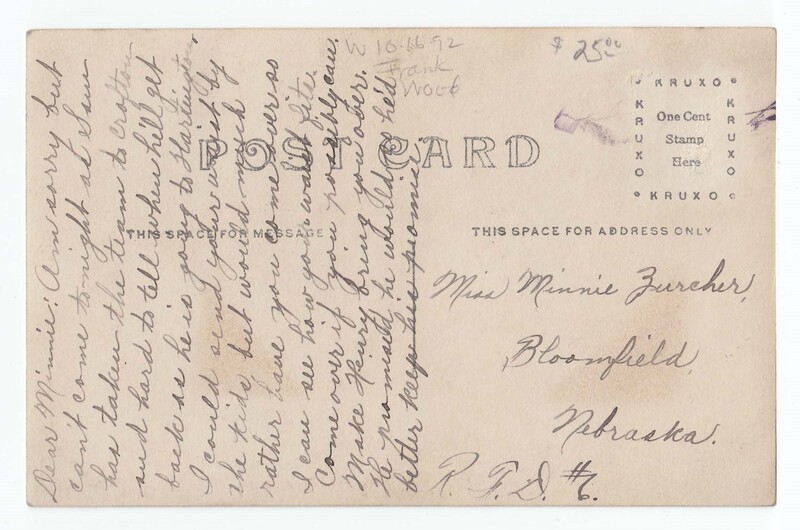 W 10-16-92
Frank
Wood
$ 25.00
KRUXO
KRUXO
KRUXO
KRUXO
One Cent
Stamp
Here
POST CARD
THIS SPACE FOR MESSAGE
THIS SPACE FOR ADDRESS ONLY
Dear Minnie: Am sorry but
can't come to night as Sam
has taken the team to Crofton
and hard to tell when he'll get
back as he is going to Hartington,
I could send your waist by
the kids but would much
rather have you come over so
I can see how your waist fits.
Come over if you possibly can.
Make Henry bring you over.
He promised he would & he'd
better keep his promise
Miss Minnie Zurcher,
Bloomfield,
Nebraska.
R. F. D. #6.